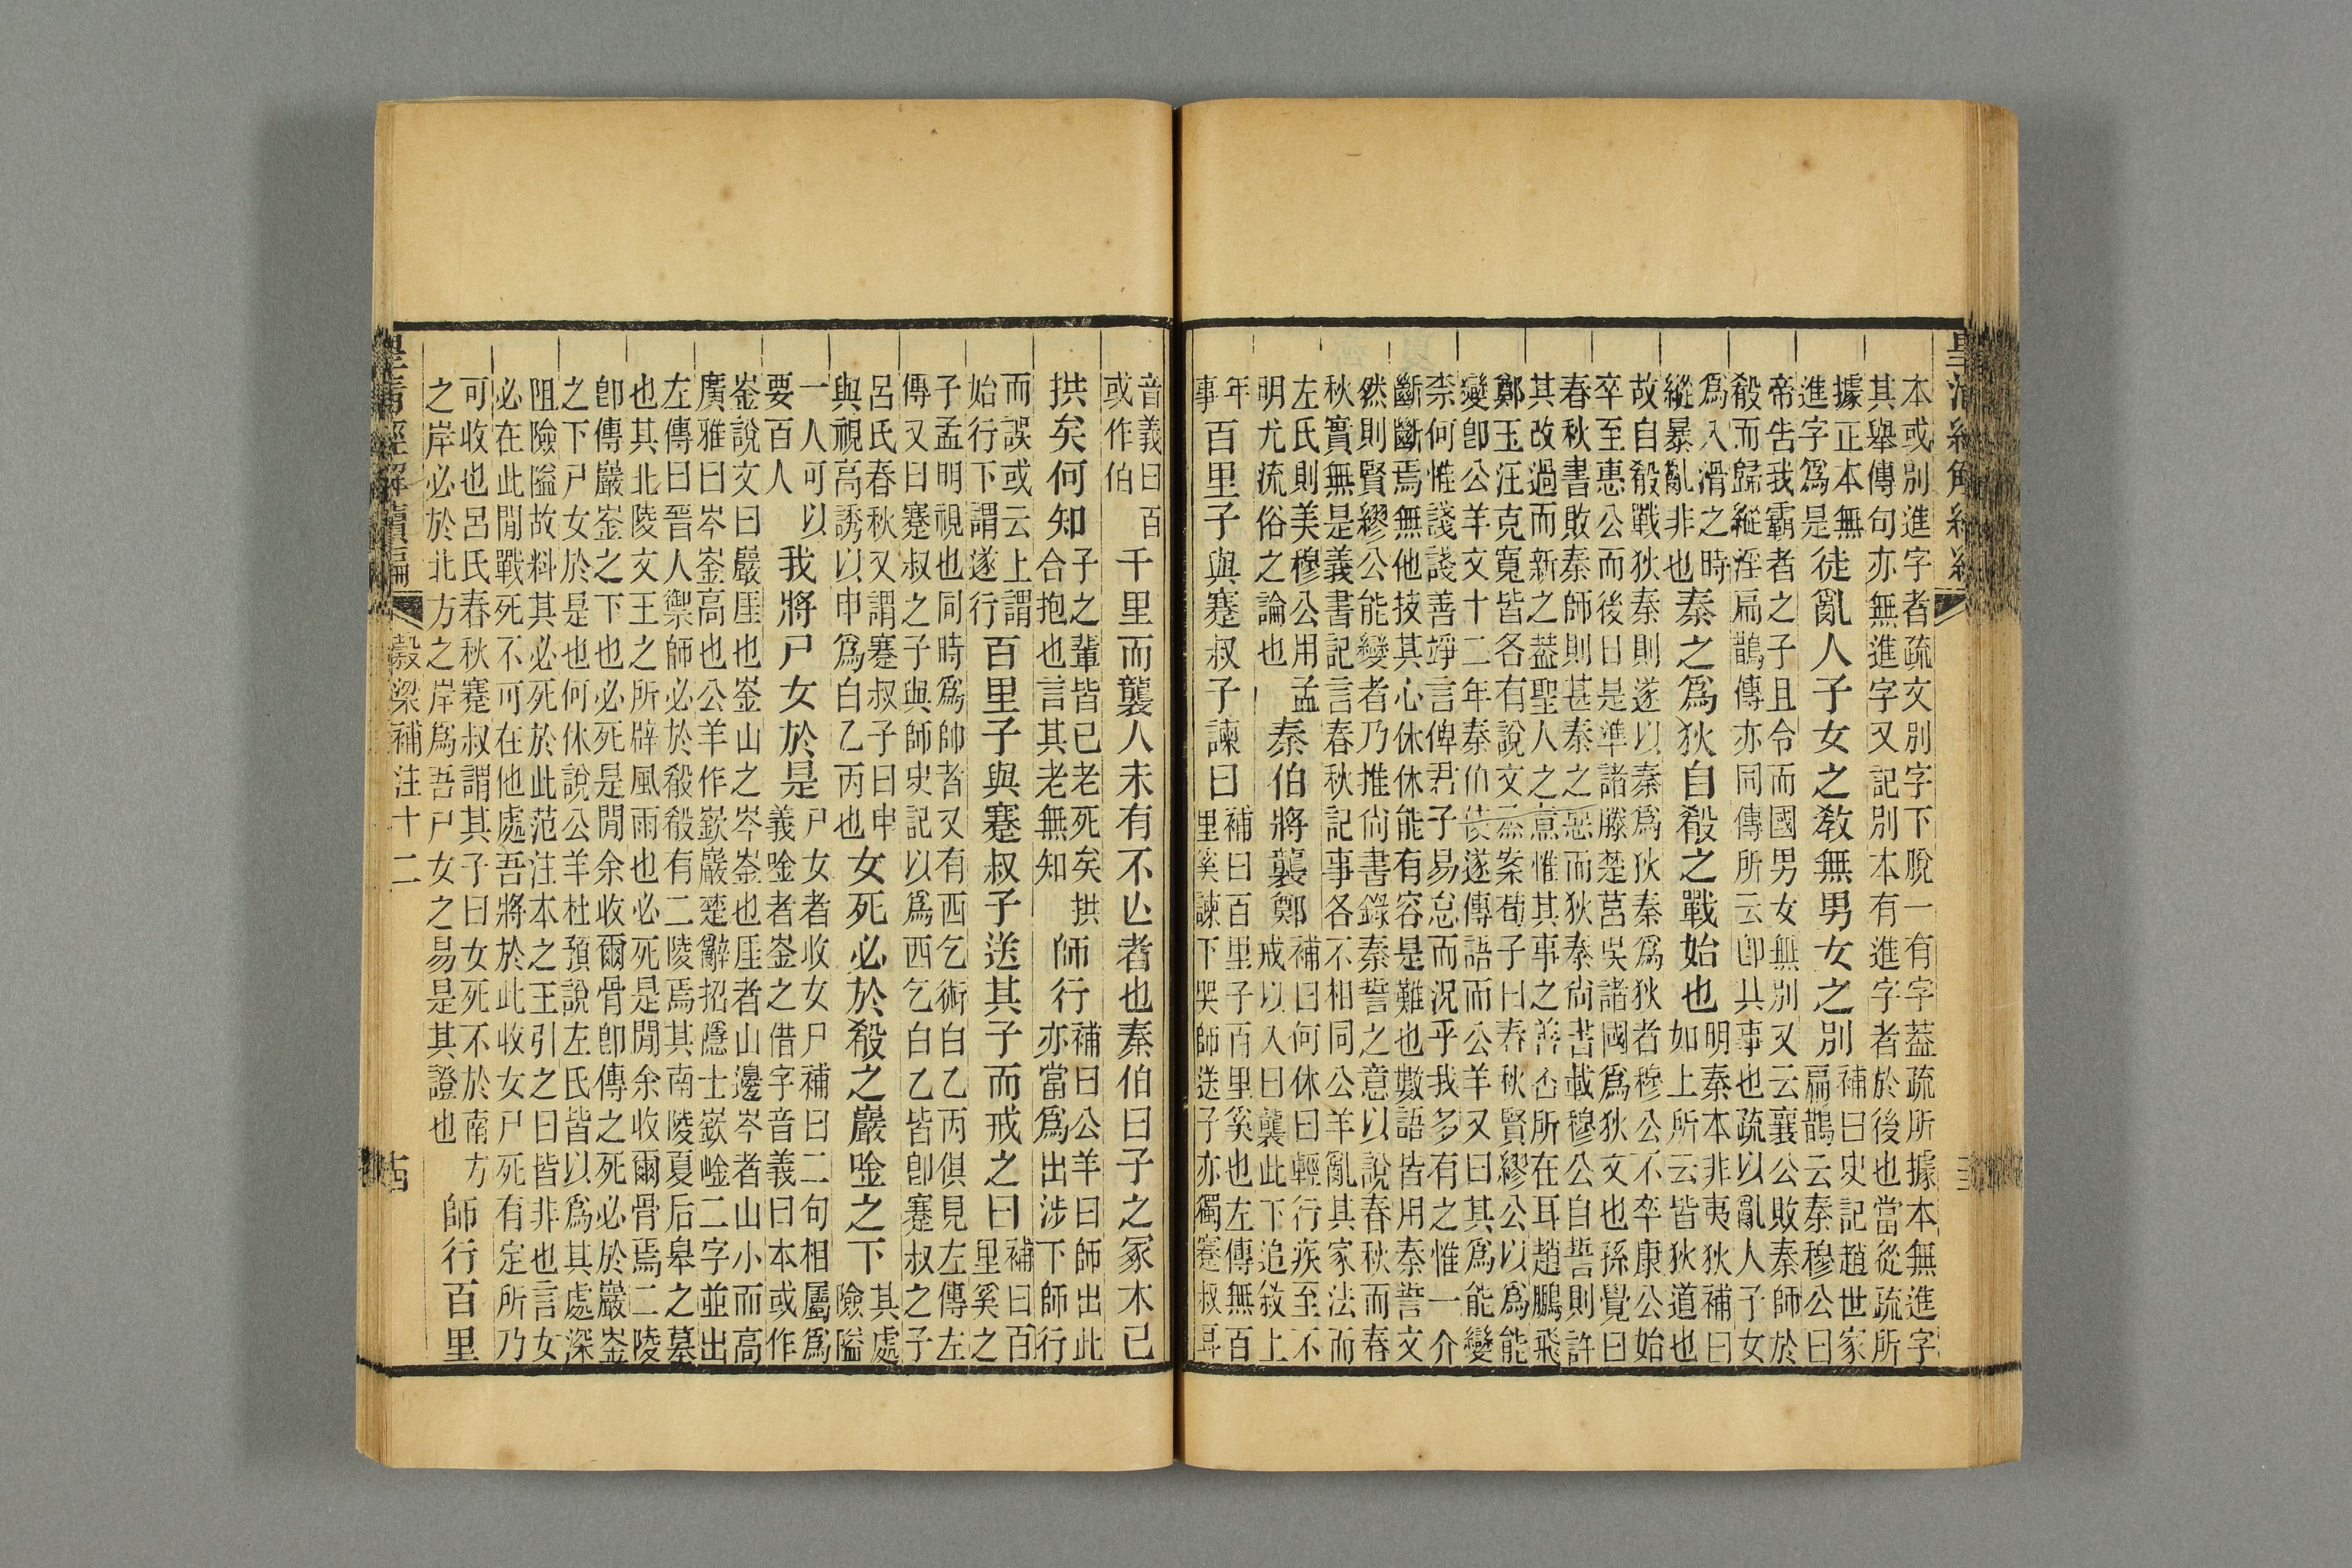 皇清經解續編
本或別進字者疏文別字下脫一有字葢疏所據本無進字
其舉傳句亦無進字又記別本有進字者於後也當從疏所
據正本無
進字爲是
徒亂人子女之敎無男女之別
補曰史記趙世家
扁鵲云秦穆公曰
帝告我霸者之子且令而國男女無別又云襄公敗秦師於
殽而歸縱淫扁鵲傳亦同傳所云卽其事也疏以亂人子女
爲入滑之時
縱暴亂非也
秦之爲狄自殽之戰始也
明秦本非夷狄補曰
如上所云皆狄道也
故自殽戰狄秦則遂以秦爲狄秦爲狄者穆公不卒康公始
卒至惠公而後日是準諸滕楚莒吳諸國爲狄文也孫覺曰
春秋書敗秦師則甚秦之惡而狄秦尙書載穆公自誓則許
其改過而新之葢聖人之意惟其事之善否所在耳趙鵬飛
鄭玉汪克寬皆各有說文烝案荀子曰春秋賢繆公以爲能
變卽公羊文十二年秦伯使遂傳語而公羊又曰其爲能變
柰何惟諓諓善竫言俾君子易怠而況乎我多有之惟一介
斷斷焉無他技其心休休能有容是難也數語皆用秦誓文
然則賢繆公能變者乃推尙書錄秦誓之意以說春秋而春
秋實無是義書記言春秋記事各不相同公羊亂其家法而
左氏則美穆公用孟
明尤流俗之論也
秦伯將襲鄭
補曰何休曰輕行疾至不
戒以入曰襲此下追敘上
年
事
百里子與蹇叔子諫曰
補曰百里子百里奚也左傳無百
里奚諫下哭師送子亦獨蹇叔耳
音義曰百
或作伯
千里而襲人未有不亾者也秦伯曰子之冢木已
拱矣何知
子之輩皆已老死矣拱
合抱也言其老無知
師行
補曰公羊曰師出此
亦當爲出涉下師行
而誤或云上謂
始行下謂遂行
百里子與蹇叔子送其子而戒之曰
補曰百
里奚之
子孟明視也同時爲帥者又有西乞術白乙丙俱見左傳左
傳又曰蹇叔之子與師史記以爲西乞白乙皆卽蹇叔之子
呂氏春秋又謂蹇叔子曰申
與視高誘以申爲白乙丙也
女死必於殽之巖唫之下
其處
險隘
一人可以
要百人
我將尸女於是
尸女者收女尸補曰二句相屬爲
義唫者崟之借字音義曰本或作
崟說文曰巖厓也崟山之岑崟也厓者山邊岑者山小而高
廣雅曰岑崟高也公羊作嶔巖楚辭招隱士嶔崯二字並出
左傳曰晉人禦師必於殽殽有二陵焉其南陵夏后皋之墓
也其北陵文王之所辟風雨也必死是閒余收爾骨焉二陵
卽傳巖崟之下也必死是閒余收爾骨卽傳之死必於巖崟
之下尸女於是也何休說公羊杜預說左氏皆以爲其處深
阻險隘故料其必死於此范注本之王引之曰皆非也言女
必在此閒戰死不可在他處吾將於此收女尸死有定所乃
可收也呂氏春秋蹇叔謂其子曰女死不於南方
之岸必於北方之岸爲吾尸女之易是其證也
師行百里
皇清經解續編
穀梁補注十二